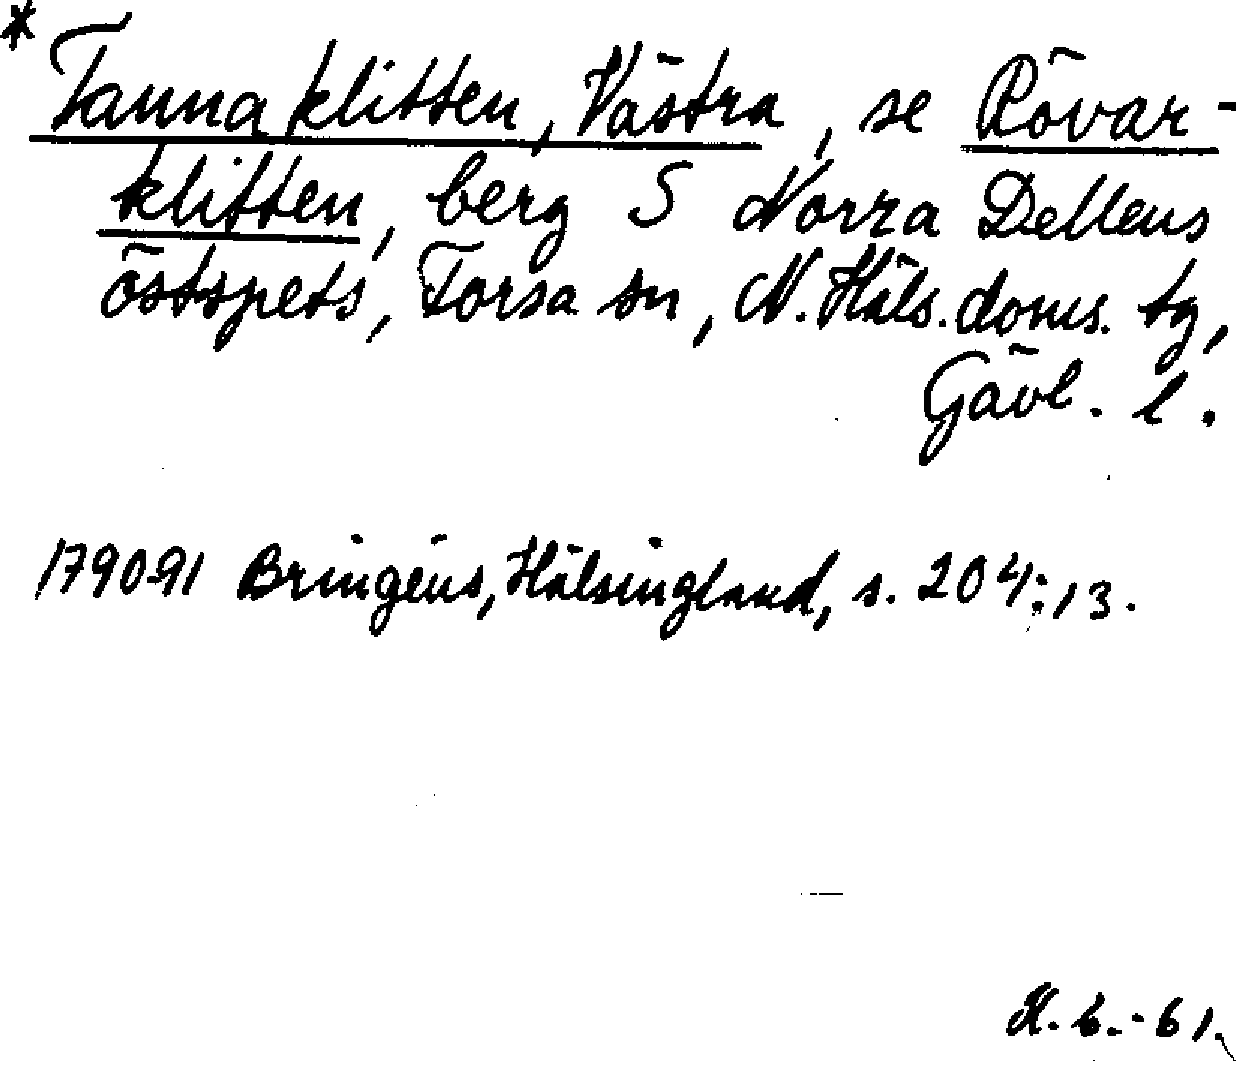 * Tannaklitten, Västra, se Rövar-
klitten, berg S Norra Dellens
östspets, Forsa sn, N. Häls. doms. tg,
Gävl. l.
179091 Bringéus, Hälsingland, s. 204:13.
H. 6.-61.